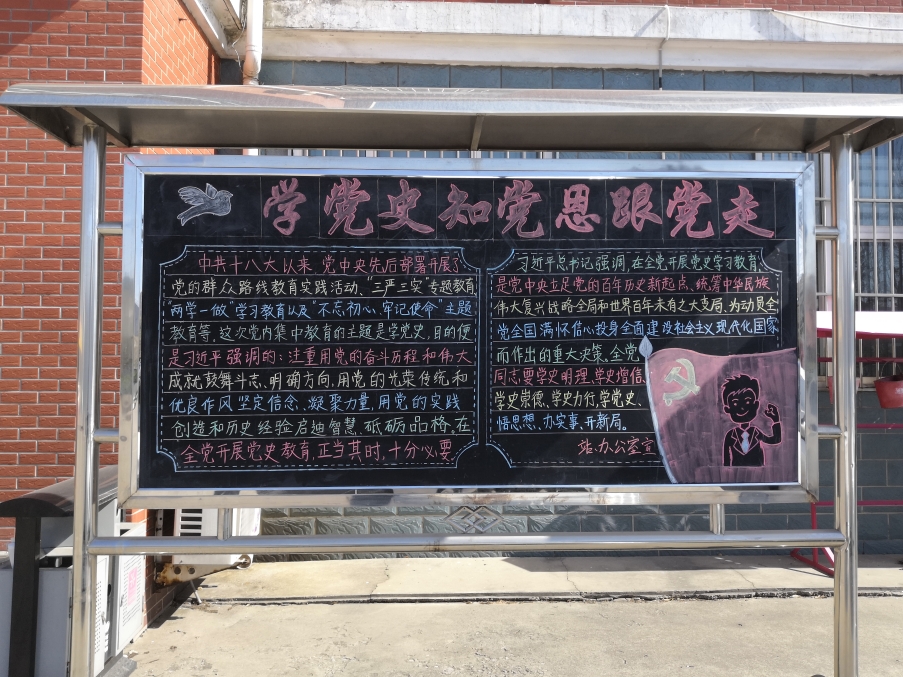 学党史知党恩跟党走
中共十八大以来,党中央先后部署开展了
党的群众路线教育实践活动、“三严三实”专题教育
“两学一做”学习教育以及“不忘初心、牢记使命”主题
教育等,这次党内集中教育的主题是学党史,目的便
是习近平强调的:注重用党的奋斗历程和伟大
成就鼓舞斗志、明确方向,用党的光荣传统和
优良作风坚定信念、凝聚力量,用党的实践
创造和历史经验启迪智慧、砥砺品格,在
全党开展党史教育,正当其时,十分必要
习近平总书记强调,在全党开展党史学习教育,
是党中央立足党的百年历史新起点、统筹中华民族
伟大复兴战略全局和世界百年未有之大变局、为动员全
党全国满怀信心投身全面建设社会主义现代化国家
而作出的重大决策。全党
同志要学史明理、学史增信、
学史崇德、学史力行,学党史、
悟思想、办实事、开新局。
站办公室宣